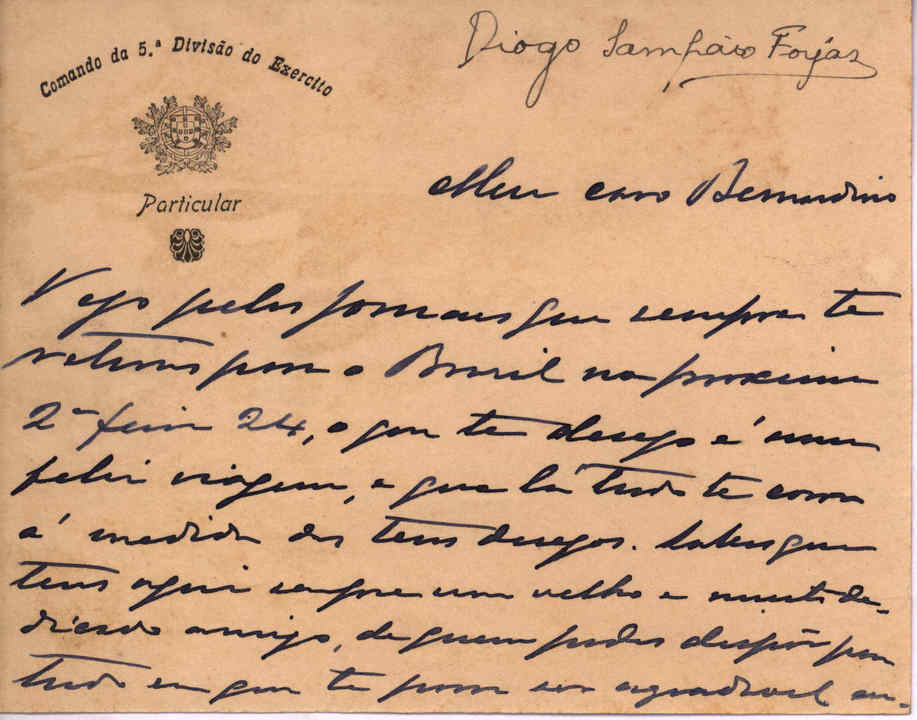 Comando da 5.ª Divisão do Exercito
Diogo Sampaio Forjaz
Particular
Meu caro Bernardino
Vejo pelos jornaes que sempre te
retiras para o Brasil na proxima
2ª feira 24, o que te desejo é uma
feliz viagem, e que lá tudo te corra
á medida dos teus desejos. Sabes que
tens aqui sempre um velho e muito de-
dicado amigo, de quem podes dispôr para
tudo em que te possa ser agradavel